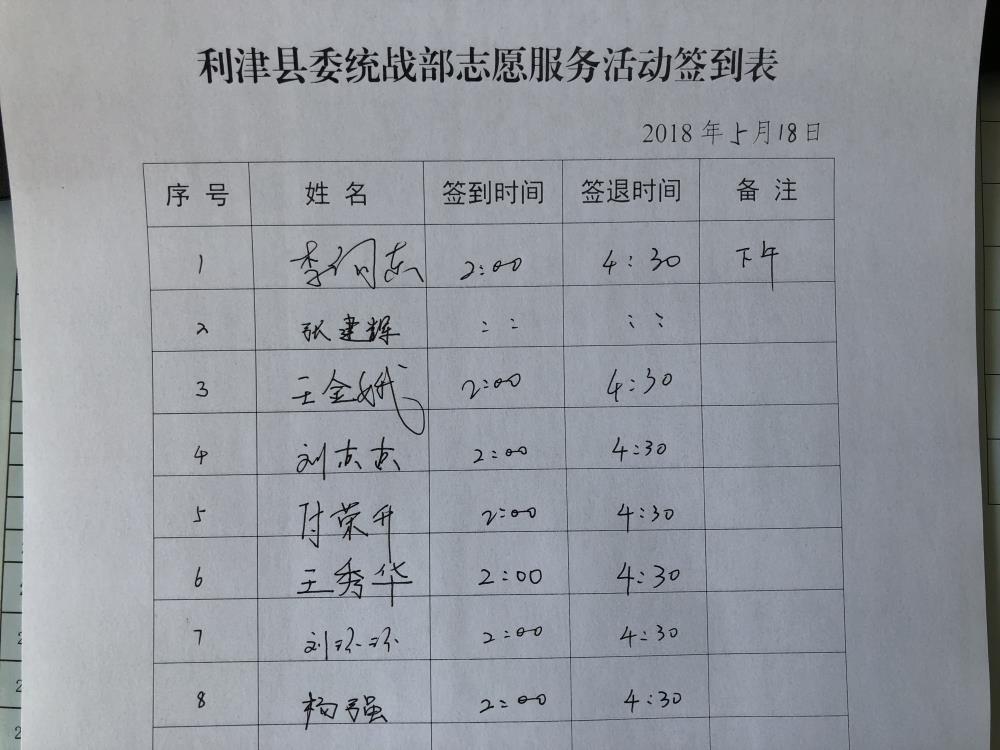 利津县委统战部志愿服务活动签到表
2018年5月18日
序号 姓名 签到时间 签退时间 备注
1 李 2:00 4:30 下午
2 张建辉 : : : :
3 王金娥 2:00 4:30
4 刘杰杰 2:00 4:30
5 付荣升 2:00 4:30
6 王秀华 2:00 4:30
7 刘环环 2:00 4:30
8 杨强 2:00 4:30